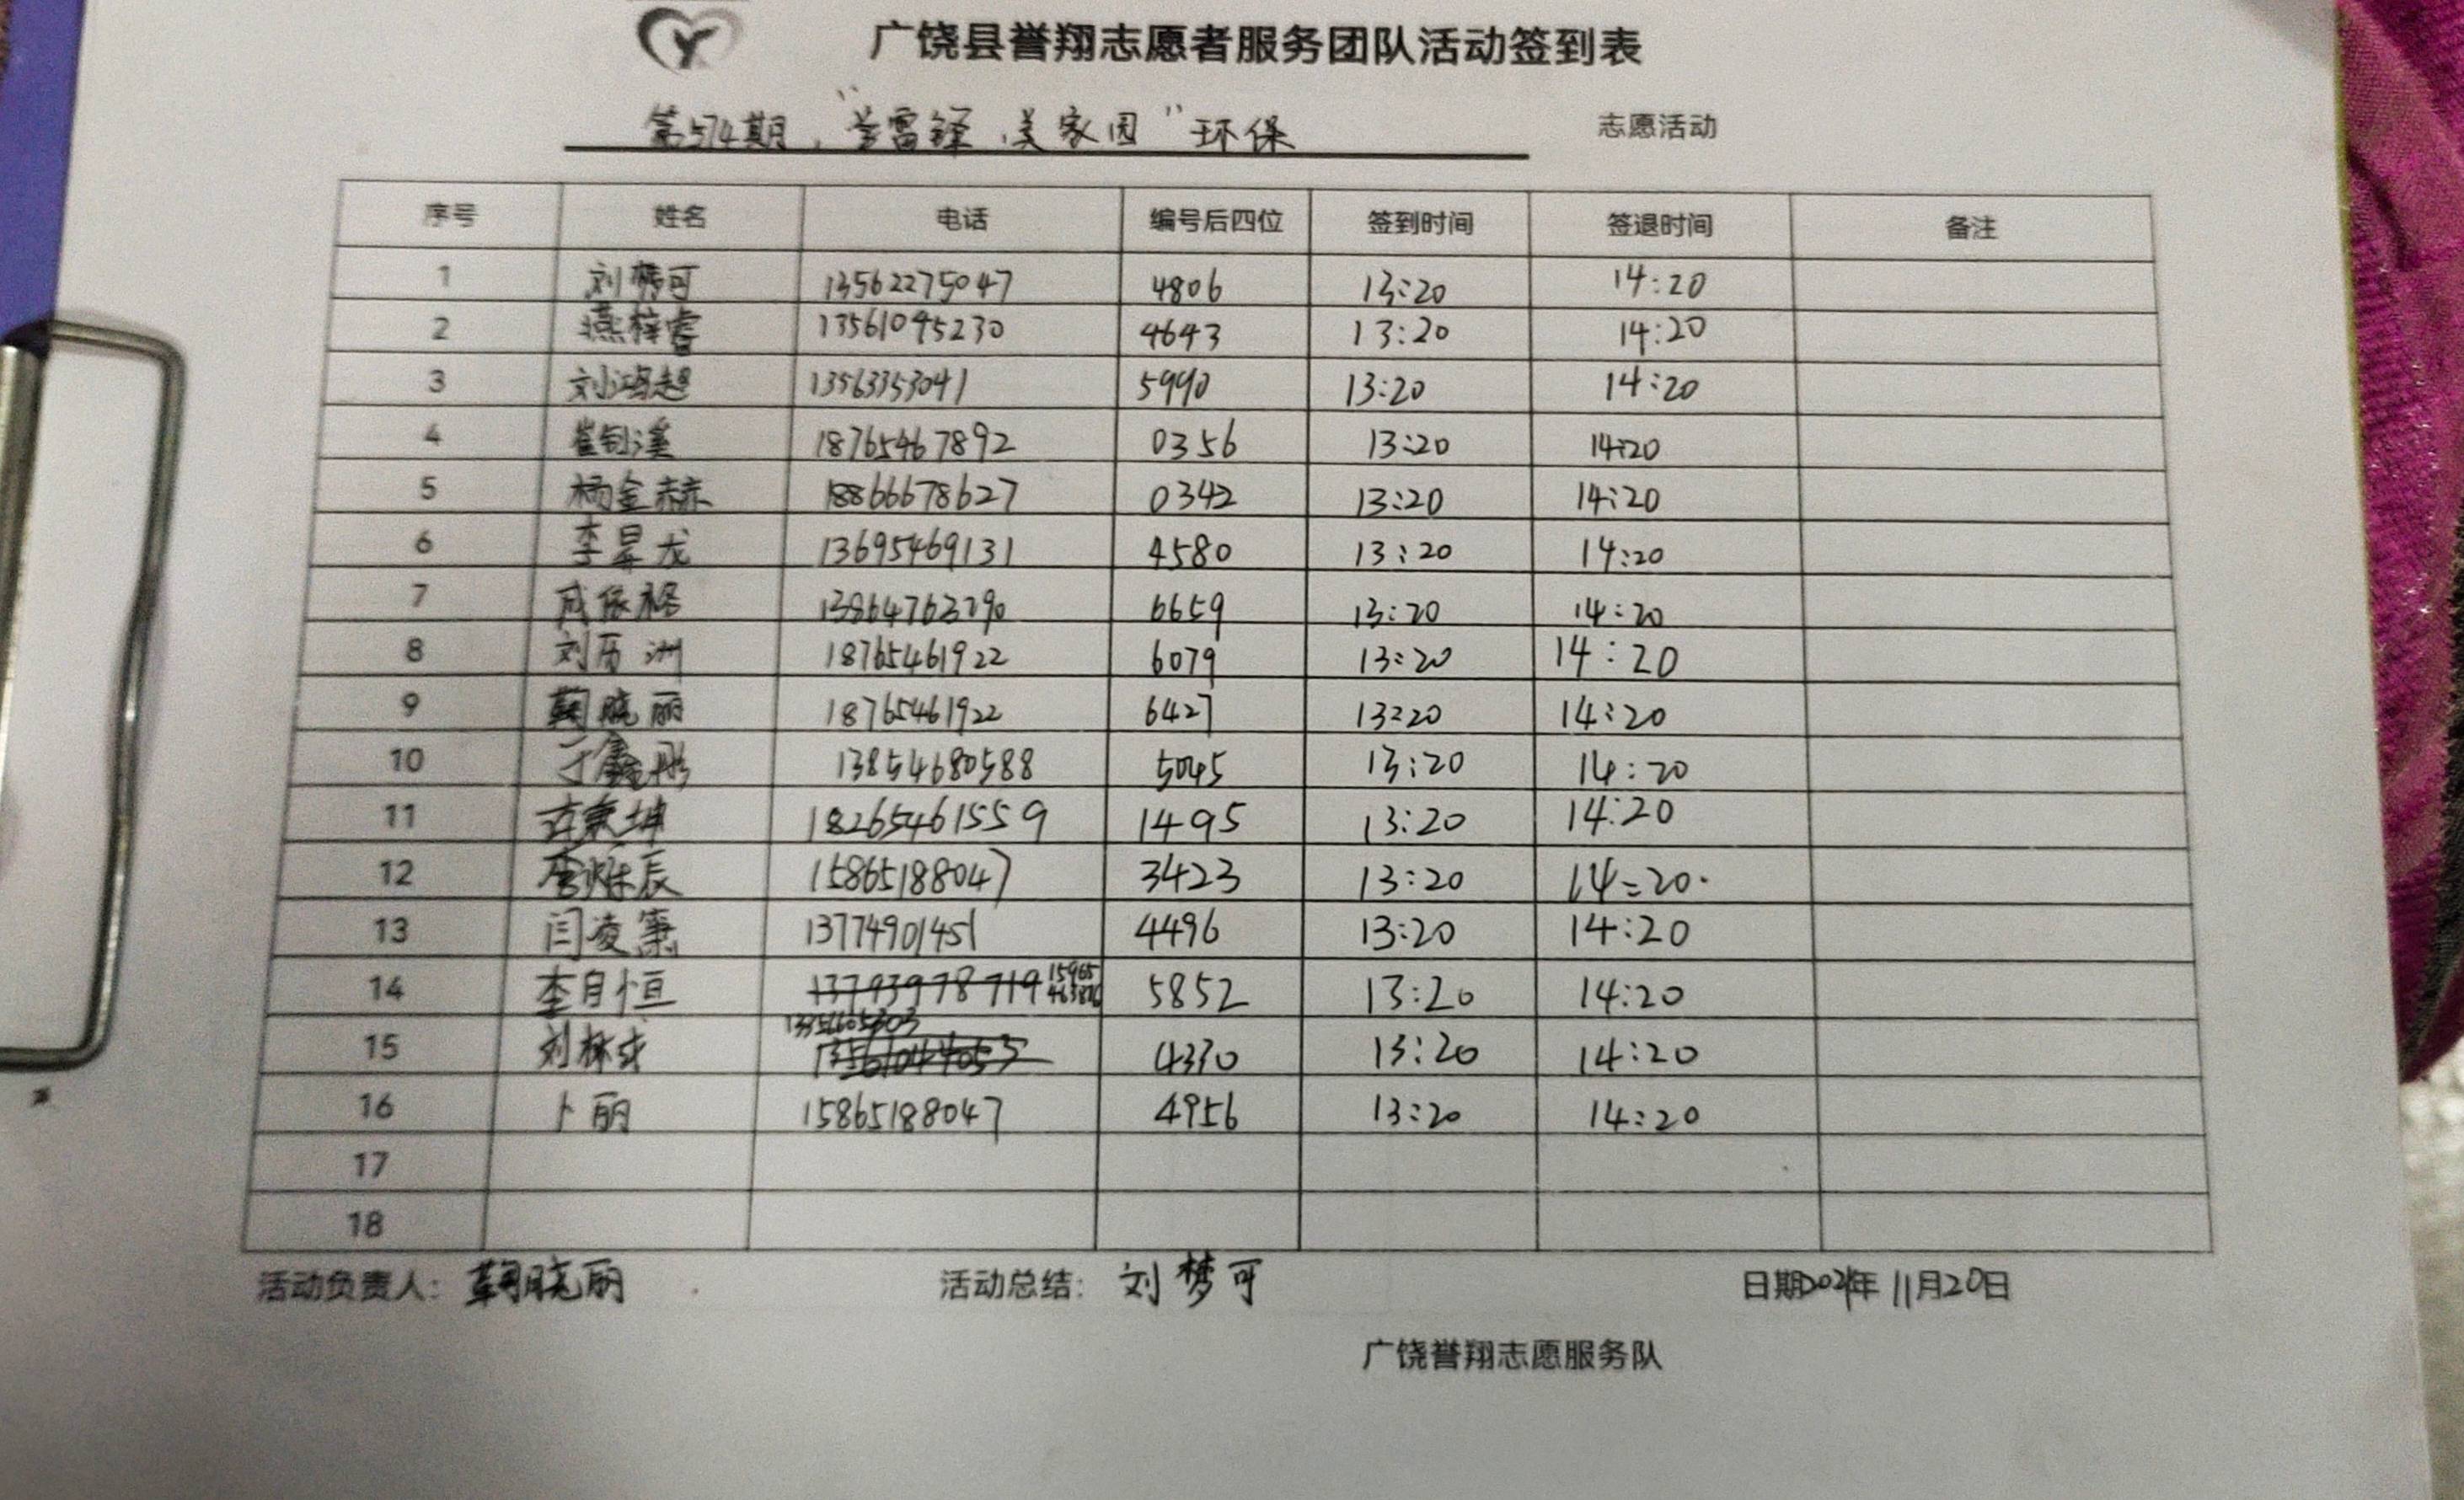 广饶县誉翔志愿者服务团队活动签到表
第574期，“学雷锋 美家园”环保 志愿活动
序号 姓名 电话 编号后四位 签到时间 签退时间 备注
1 刘梦可 13562275047 4806 13:20 14:20
2 燕梓睿 13561095230 4643 13:20 14:20
3 刘鸿超 13563353041 5990 13:20 14:20
4 崔 溪 18765467892 0356 13:20 14:20
5 杨金赫 18866678627 0342 13:20 14:20
6 李昊龙 13695469131 4580 13:20 14:20
7 成依 13864763290 6659 13:20 14:20
8 刘历洲 18765461922 6079 13:20 14:20
9 鞠晓丽 18765461922 6427 13:20 14:20
10 于鑫彤 13854680588 5045 13:20 14:20
11 坤 18265461559 1495 13:20 14:20
12 辰 15865188047 3423 13:20 14:20
13 闫凌 13774901451 4496 13:20 14:20
14 李月恒 13793978719 5852 13:20 14:20
15 刘林 4330 13:20 14:20
16 卜丽 15865188047 4956 13:20 14:20
17
18
活动负责人：鞠晓丽 活动总结：刘梦可 日期2021年11月20日
广饶誉翔志愿服务队